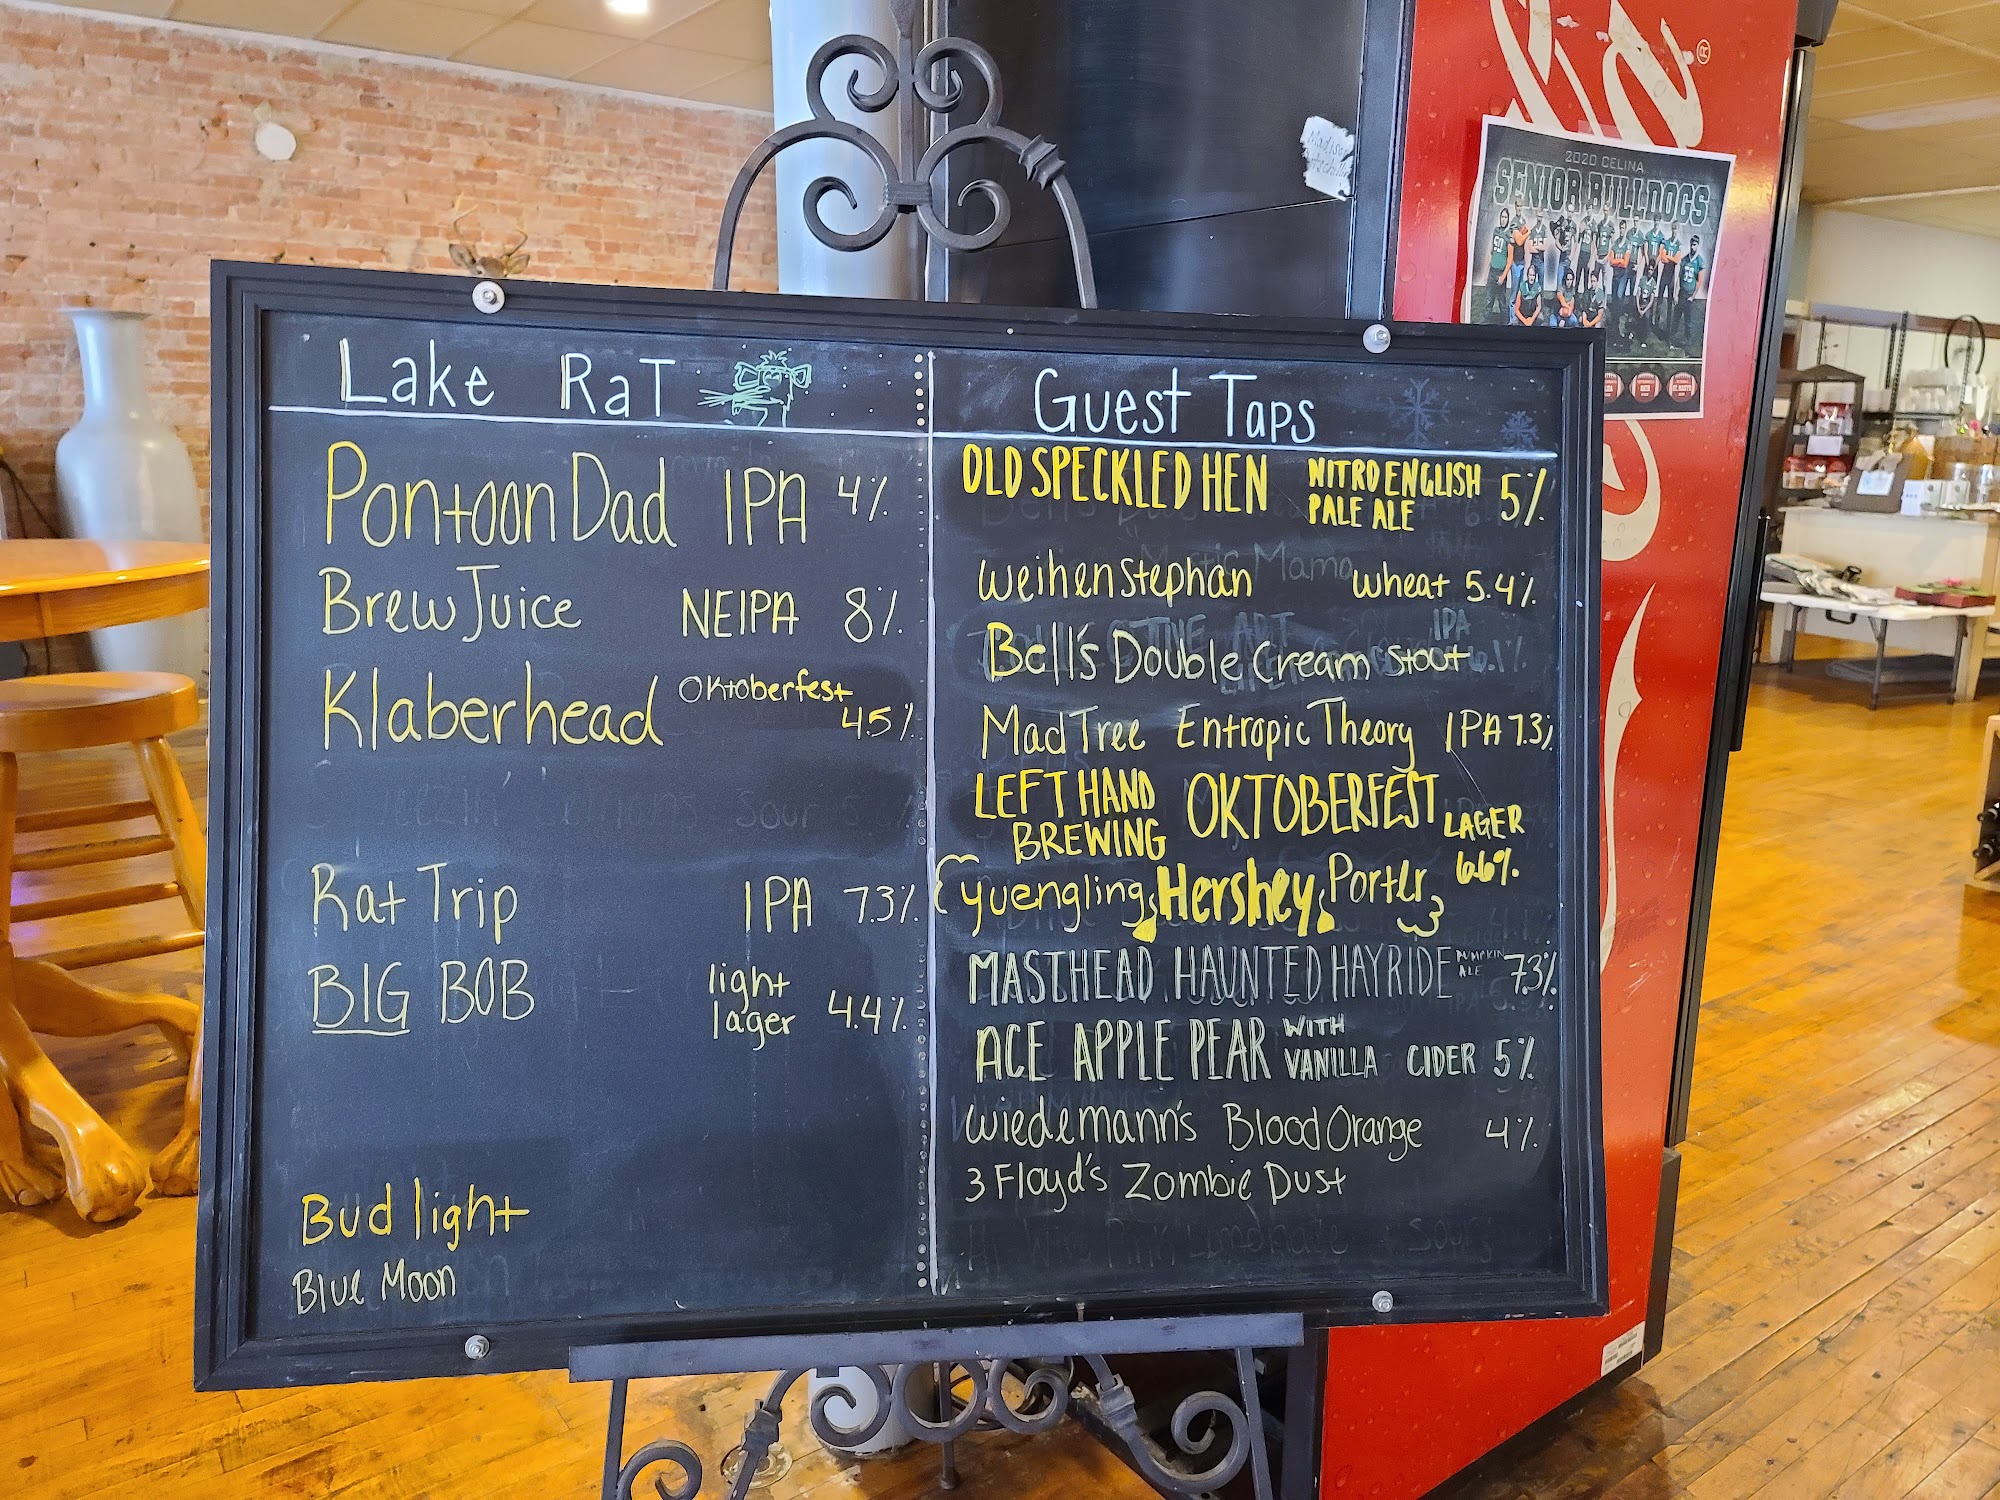 Lake Rat
Pontoon Dad IPA 4%
Brew Juice NEIPA 8%
Klaberhead Oktoberfest 4.5%
Rat Trip IPA 7.3%
BIG BOB light lager 4.4%
Bud light
Blue Moon
Guest Taps
OLD SPECKLED HEN NITRO ENGLISH PALE ALE 5%
Weihenstephan Wheat 5.4%
Bell's Double Cream Stout
MadTree Entropic Theory IPA 7.3%
LEFT HAND BREWING OKTOBERFEST LAGER 6.6%
Yuengling Hershey Porter
MASTHEAD HAUNTED HAYRIDE PUMPKIN ALE 7.3%
ACE APPLE PEAR WITH VANILLA CIDER 5%
Wiedemann's Blood Orange 4%
3 Floyd's Zombie Dust
2020 CELINA
SENIOR BULLDOGS